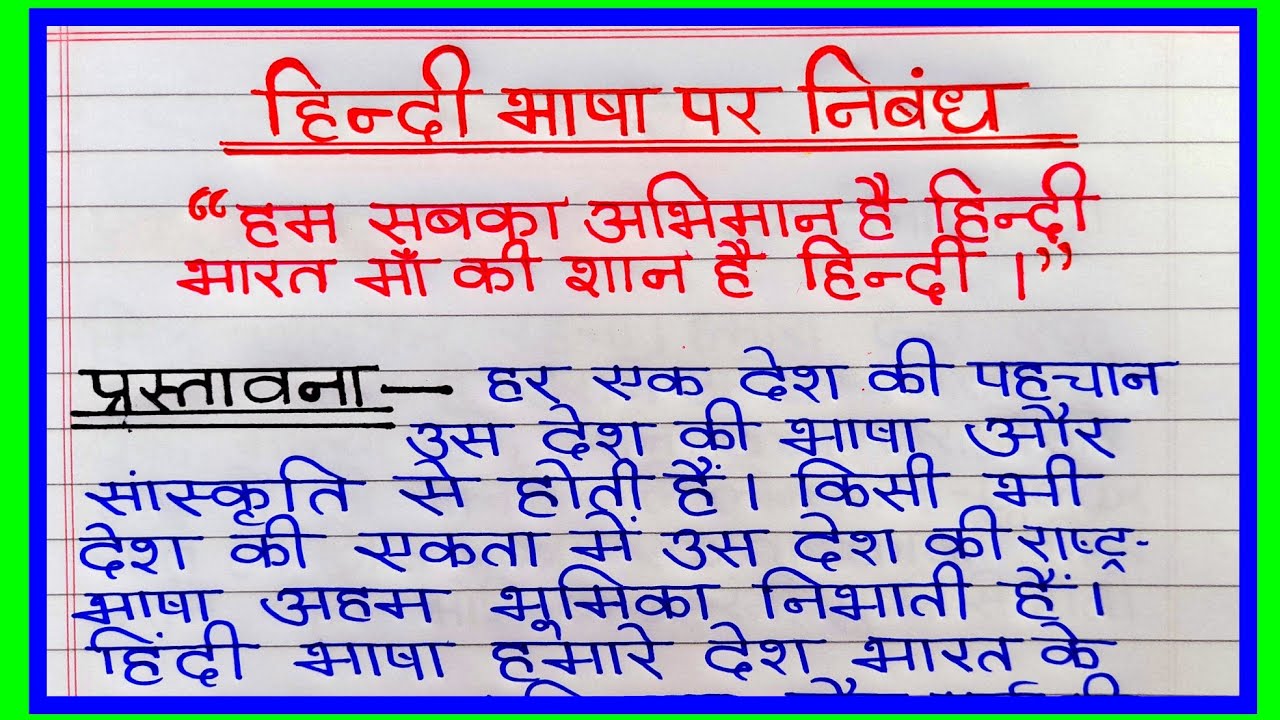 हिन्दी भाषा पर निबंध
“हम सबका अभिमान है हिन्दी
भारत माँ की शान है हिन्दी।”
प्रस्तावना — हर एक देश की पहचान
उस देश की भाषा और
सांस्कृति से होती हैं। किसी भी
देश की एकता में उस देश की राष्ट्र-
भाषा अहम भूमिका निभाती हैं।
हिंदी भाषा हमारे देश भारत के